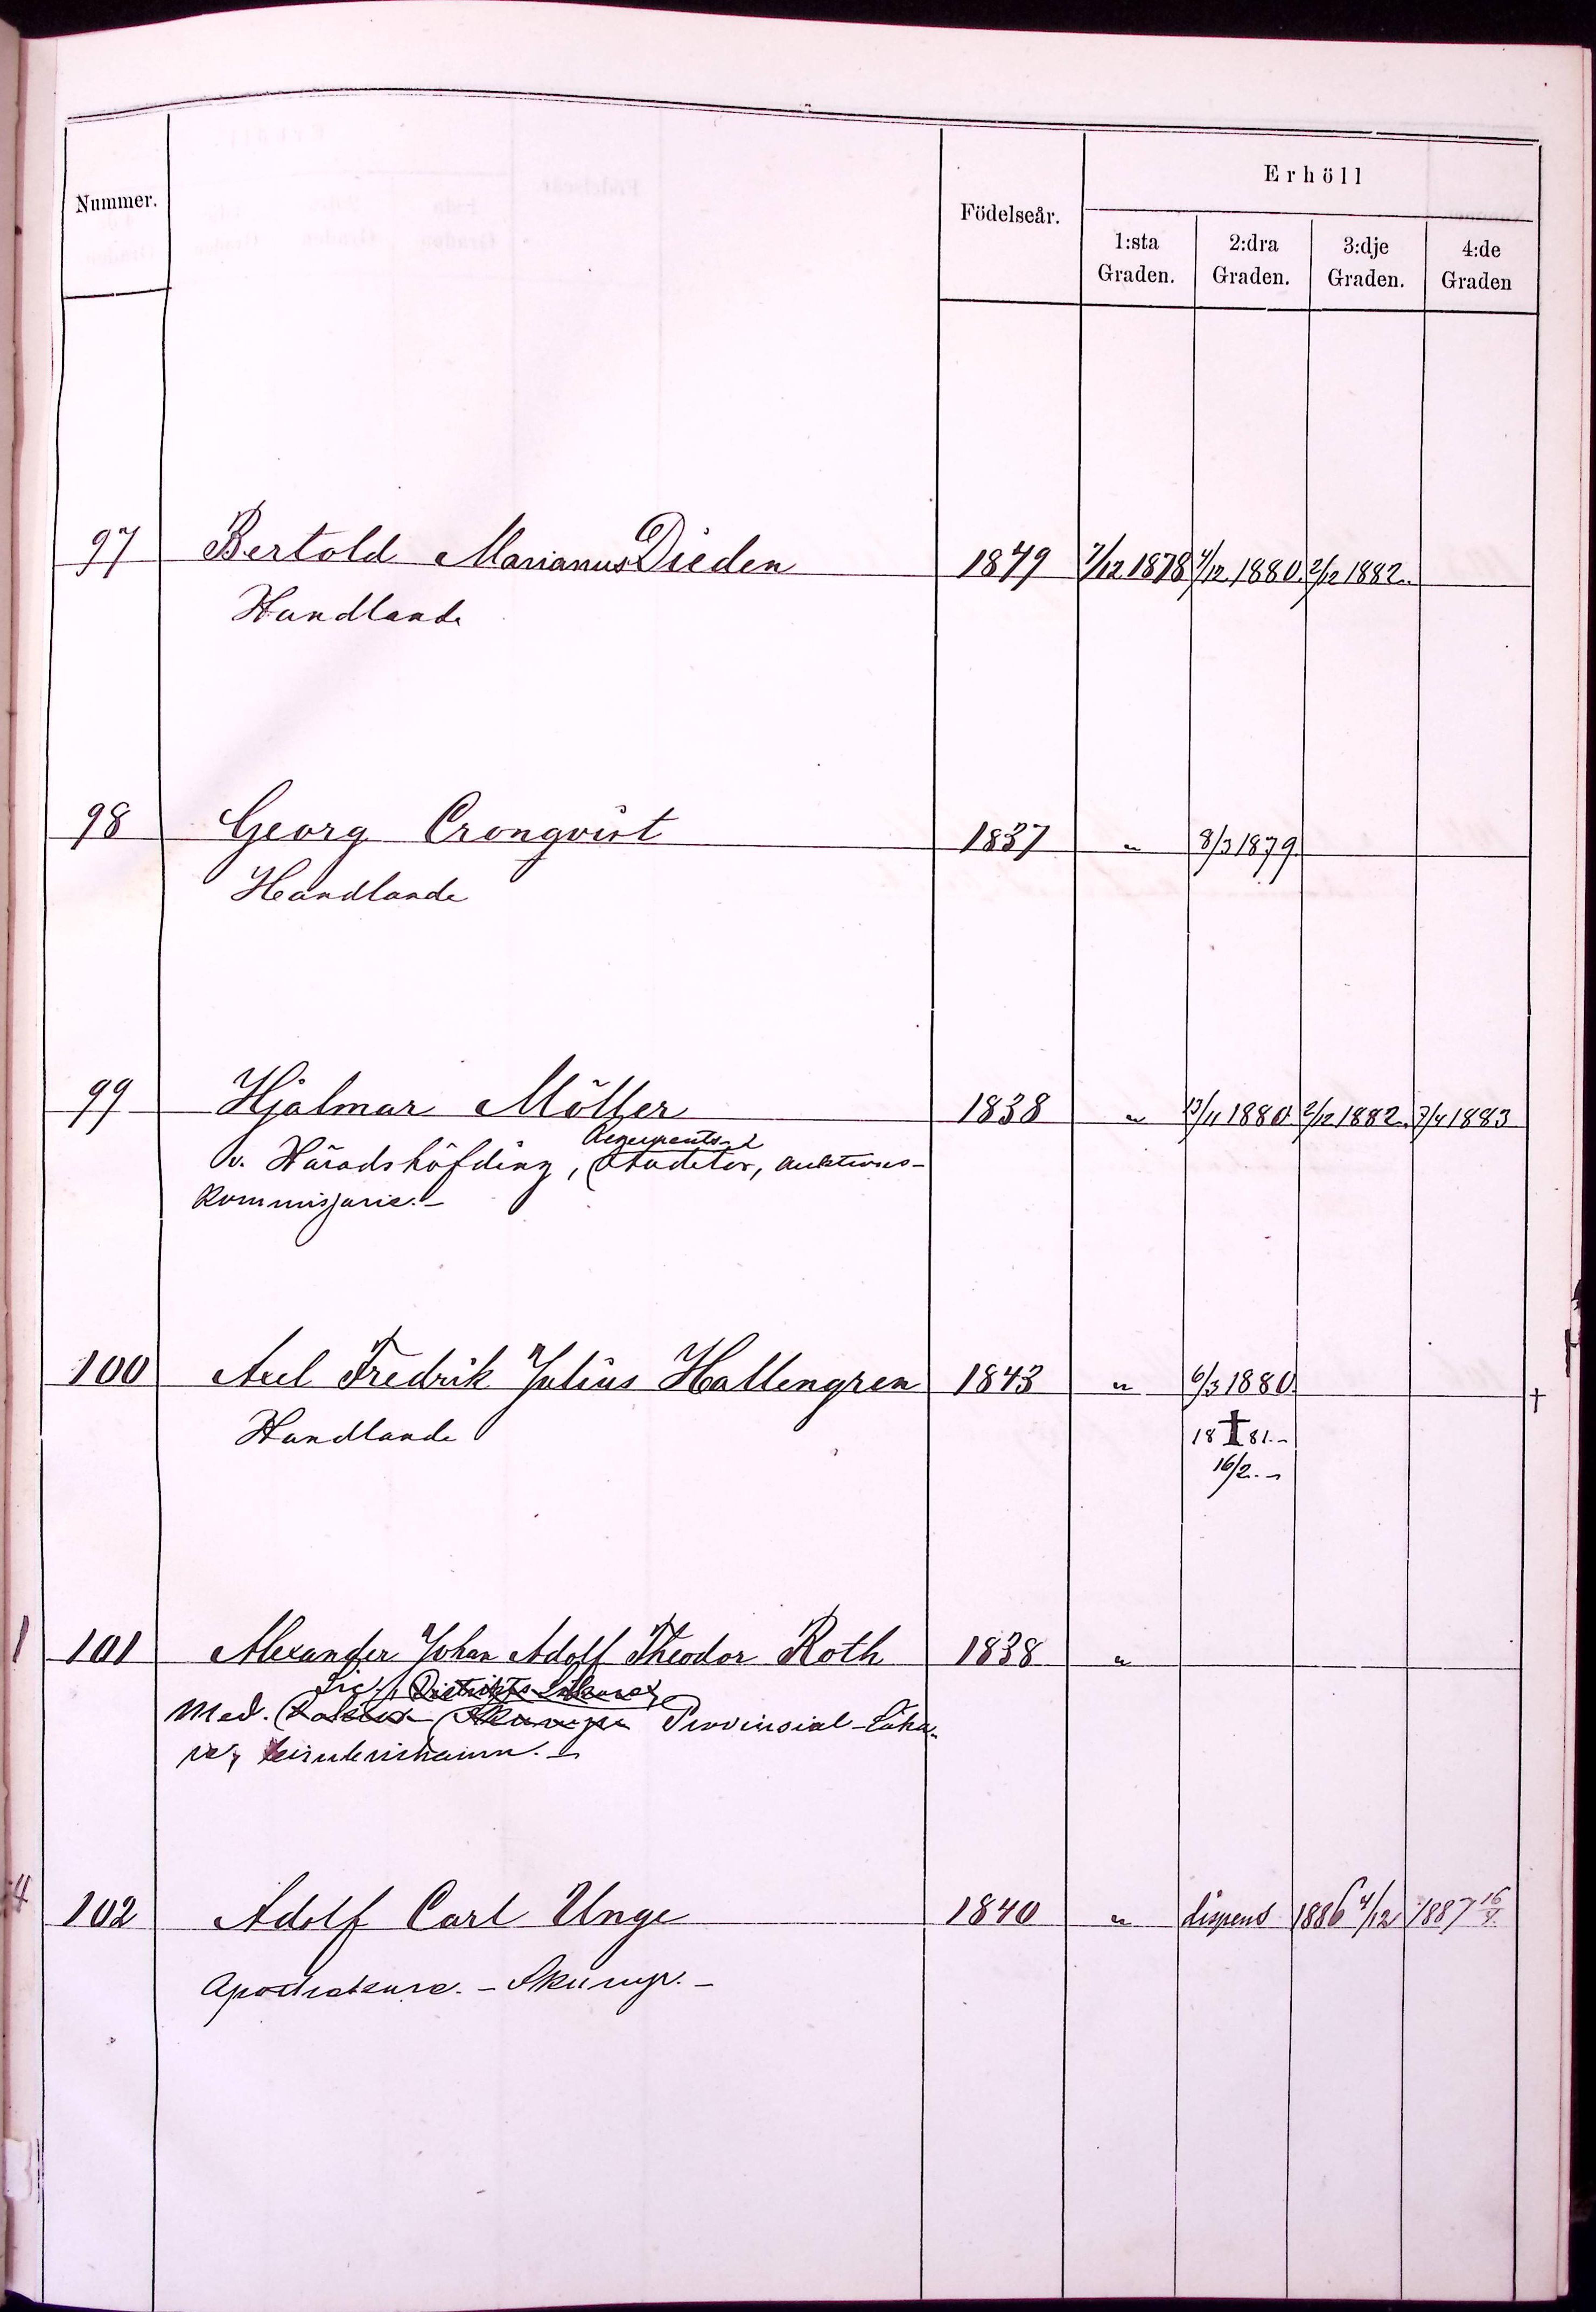 Erhöll
Nummer. Födelseår. 1:sta Graden. 2:dra Graden. 3:dje Graden. 4:de Graden
97 Bertold Marianus Dieden 1849 7/12 1878 4/12 1880. 2/12 1882.
Handlande
98 Georg Cronqvist 1837 " 8/3 1879.
Handlande
99 Hjalmar Möller 1838 " 13/11 1880. 2/12 1882. 7/4 1883
Regements
v. Häradshöfding, Auditör, Auktions-
kommissarie.-
100 Axel Fredrik Julius Hallengren 1843 " 6/3 1880. †
Handlande 18†81.-
16/2.-
101 Alexander Johan Adolf Theodor Roth 1838 "
Lic. Distrikts-Läkare
Med. Skurup Provinsial-Läka-
re,
102 Adolf Carl Unge 1840 " dispens 1886 4/12 1887 16/4.
Apothekare. - Skurup. -